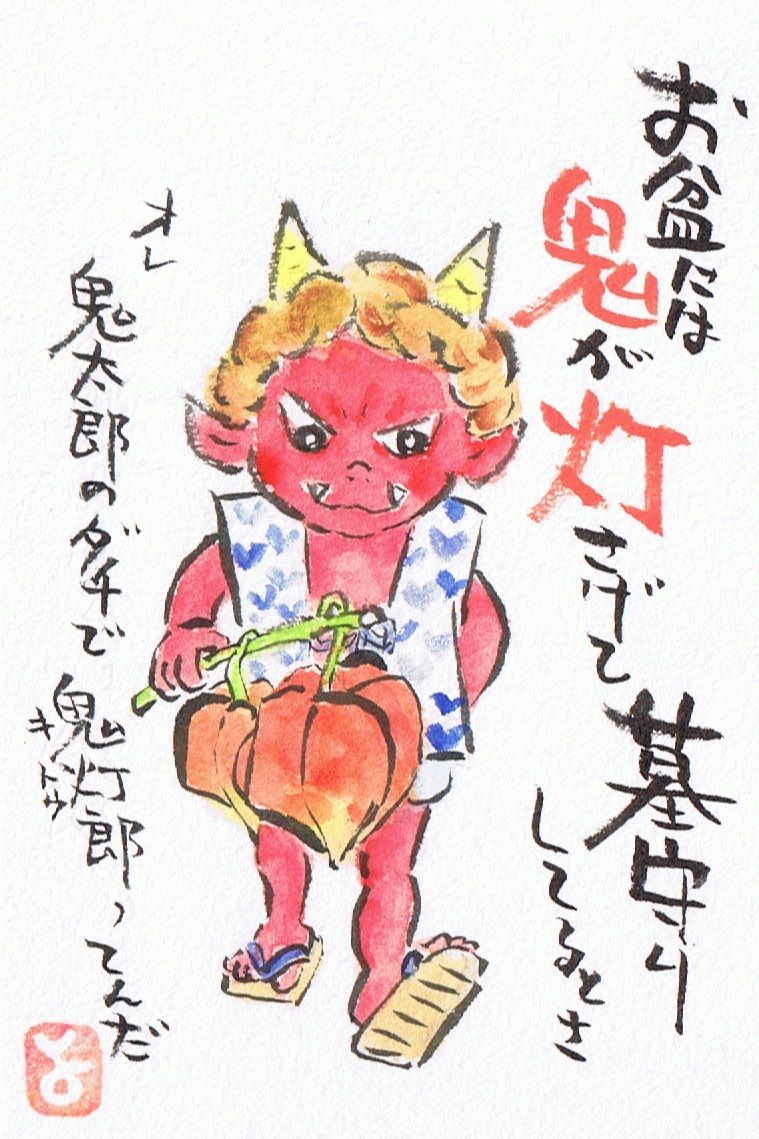 お盆には
鬼が灯さげて
墓守り
してるとさ
オレ
鬼太郎のダチで
鬼灯郎ってんだ
キトウ